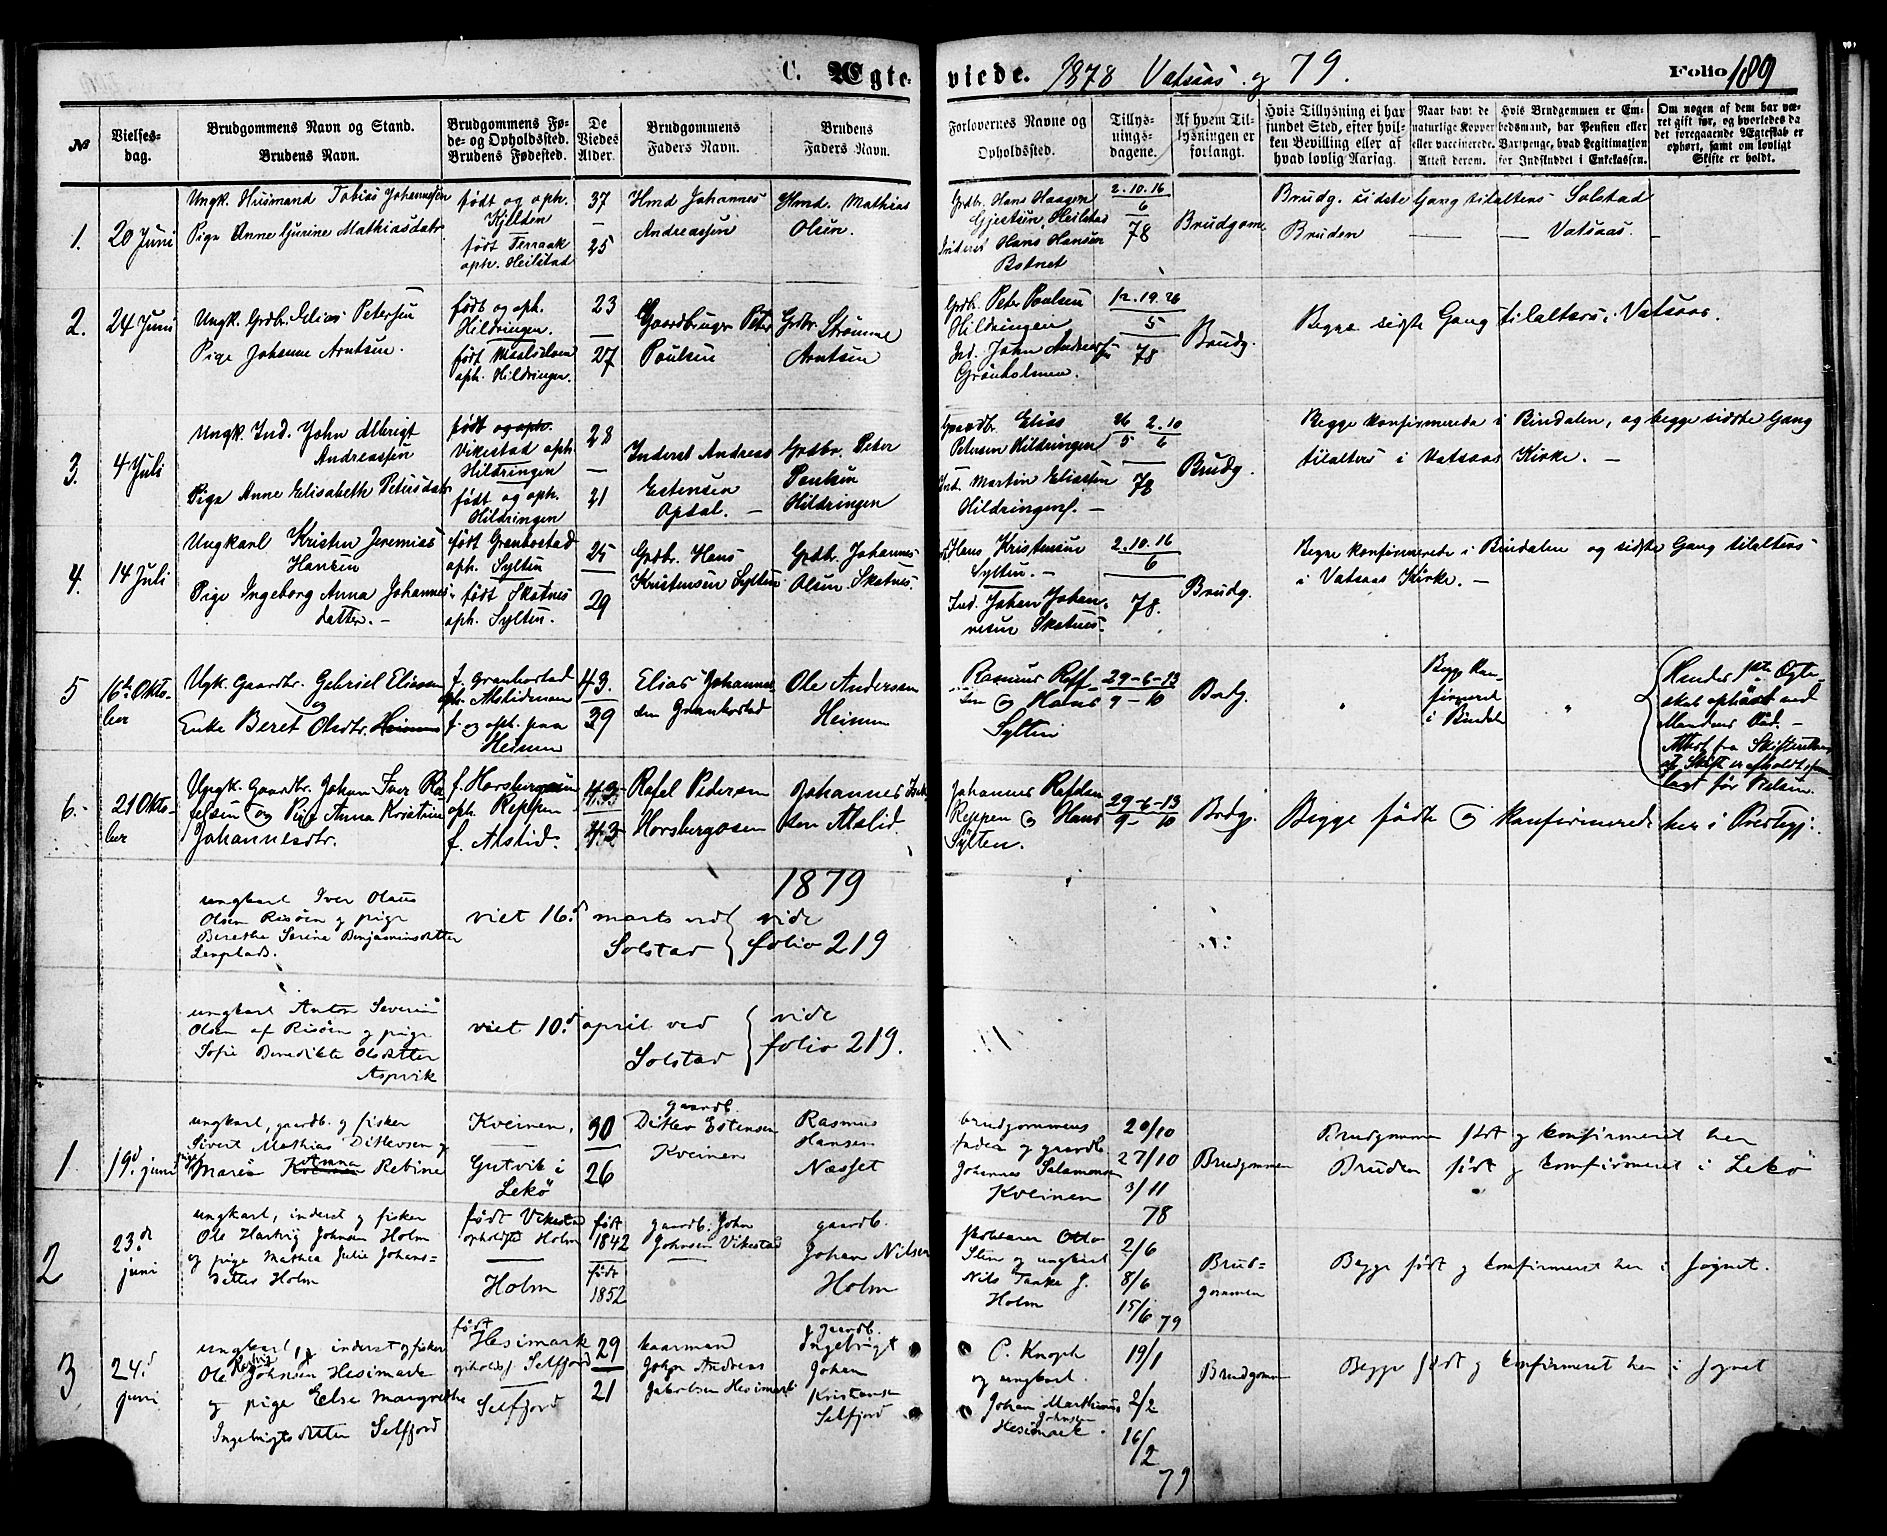 C. Ægte-
viede. 1878 Vatsaas og 79.
Folio 189
No
Vielses-
dag.
Brudgommens Navn og Stand.
Brudens Navn.
Brudgommens Fø-
de- og Opholdssted.
Brudens Fødested.
De
Viedes
Alder.
Brudgommens
Faders Navn.
Brudens
Faders Navn.
Forlovernes Navne og
Opholdssted.
Tillys-
nings-
dagene.
Af hvem Til-
lysningen er
forlangt.
Hvis Tillysning ei har
fundet Sted, efter hvil-
ken Bevilling eller af
hvad lovlig Aarsag.
Naar havt de
naturlige Kopper
eller vaccinerede.
Attest derom.
Hvis Brudgommen er Em-
bedsmand, har Pension eller
Vartpenge, hvad Legitimation
for Indskuddet i Enkekassen.
Om nogen af dem har væ-
ret gift før, og hvorledes da
det foregaaende Ægteskab er
ophørt, samt om lovligt
Skifte er holdt.
1.
20 Juni
Ungk. Husmand Tobias Johannessen
Pige Anne Gurine Mathiasdatr
født og oph.
Kjelden
født Terraak
oph. Heilstad
37
—
25
Hmd Johannes
Andreassen
Hmd. Mathias
Olsen
Grdbr. Hans Haagen
Gjestsen, Heilstad
Inderst Hans Hansen
Botnet
2.10.16
6
78
Brudgom
Brudg. sidste Gang tilalters Solstad
Bruden — — Vatsaas. —
2.
24 Juni
Ungk. Grdbr. Elias Petersen
Pige Johanne Arntsen.
født og oph.
Hildringen.
født
oph. Hildringen.
23
—
27
Gaardbruger Peter
Poulsen
Grdbr. Strømme
Arntsen
Grdb. Peter Poulsen
Hildringen
Ind. John Andreassen
Grønholmen.
12.19.26
5
78
Brudg.
Begge sidste Gang tilalters i Vatsaas.
3.
4 Juli
Ungk. Ind. John Albrigt
Andreassen
Pige Anne Elisabeth Petersdatr
født og oph.
Vikestad oph.
Hildringen
født og oph.
Hildringen
28
—
21
Inderst Andreas
Estensen
Opdal. —
Grdbr. Peter
Poulsen
Hildringen
Gaardb. Elias
Petersen Hildringen
Ind. Martin Eliassen
Hildringen. —
26 2.10
5 6
78
Brudg.
Begge konfirmerede i Bindalen, og begge sidste Gang
tilalters i Vatsaas Kirke. —
4.
14 Juli
Ungkarl Kristen Jeremias
Hansen
Pige Ingeborg Anna Johannes-
datter. —
født Granbostad
oph. Sylten
født Skotnes
oph. Sylten.
25
29
Grdbr. Hans
Kristensen Sylten
Grdb. Johannes
Olsen Skotnes
Hans Kristensen
Sylten. —
Ind. Johan Johan-
nesen Skotnes.
2.10.16
6
78.
Brudg.
Begge konfirmerede i Bindalen og sidste Gang tilalters
i Vatsaas Kirke. —
5
16de Okto-
ber
Ugk. Gaardbr. Gabriel Eliasen
og
Enke Beret Olsdtr. Heimen
f. Granbostad
oph.
f. og oph. paa
Heimen
43.
39
Elias Johannes-
sen Granbostad
Ole Andersen
Heimen
Rasmus
sen og Hans
Sylten
29-6-13
9-10
Brdg.
"
Begge kon-
firmeret
i Bindal
"
Hendes 1ste Ægte-
skab ophævet ved
Mandens Død. —
Attest fra Skifteretten
at Skift er afholdt
lagt før Vielsen.
6.
21 Okto-
ber
Ungk. Gaardbr. Johan Iver Ra-
felsen og Pige Anna Kristine
Johannesdtr.
f. Horsbergaasen
oph. Reppen
f. Alslid.
43
Rafel Pedersen
Horsbergaasen
Johannes
sen Alslid.
Johannes Rafelsen
Reppen og Hans
Sylten.
29-6-13
9- 10
Brdg.
Begge fødte og konfirmerede her i Præstegj:
1879
ungkarl Iver Olaus
Olsen Risøen og pige
Berethe Serine Benjaminsdatter
viet 16.d marts ved
Solstad
vide
folio 219
ungkarl Anton Severin
Olsen af Risøen og pige
Sofie Benedikte Olsdatter
Aspvik
viet 10.d april ved
Solstad
vide
folio 219.
1
19d juni
ungkarl, gaardb. og fisker
Sivert Mathias Ditlevsen og
pige
Anna
Maria Kveinen Rebine
Kveinen,
—
Gutvik i
Lekø
30
26
gaardb.
Ditlev Estensen
Kveinen
Rasmus
Hansen
Næsset
brudgommens
fader og gaardb.
Johannes Salamonsen
Kveinen
20/10
27/10
3/11
78
Brudgommen
Brudgommen født og konfirmeret her
Bruden født og konfirmeret i Lekø
2
23.de
juni
ungkarl, inderst og fisker
Ole Hartvig Johnsen Holm
og pige Mathea Julie Johans-
datter Holm
født Vikestad
opholdst Holm
Holm
født
1842
født
1852
gaardb. John
Johnsen Vikestad
gaardb.
Johan Nilsen
Holm
Otto
Sten og ungkarl
Nils Tanke J.
Holm
2/6
8/6
15/6 79
Brud-
gommen
Begge født og konfirmeret her i sognet.
3
24.d
juni
ungkarl, inderst og fisker
Ole Johnsen Hesimark
og pige Else Margrethe
Ingebrigtsdatter Selfjord
født
Hesimark
opholdst Selfjord
Selfjord
29
21
kaarmand
John Andreas
Jakobsen Hesimark
gaardb.
Ingebrigt
Johan
Kristensen
Selfjord
C. Knoph
og ungkarl.
Johan Markhinus
Johnsen
Hesimark.
19/1
2/2
16/2
79
Brudgommen
Begge født og konfirmeret her i sognet